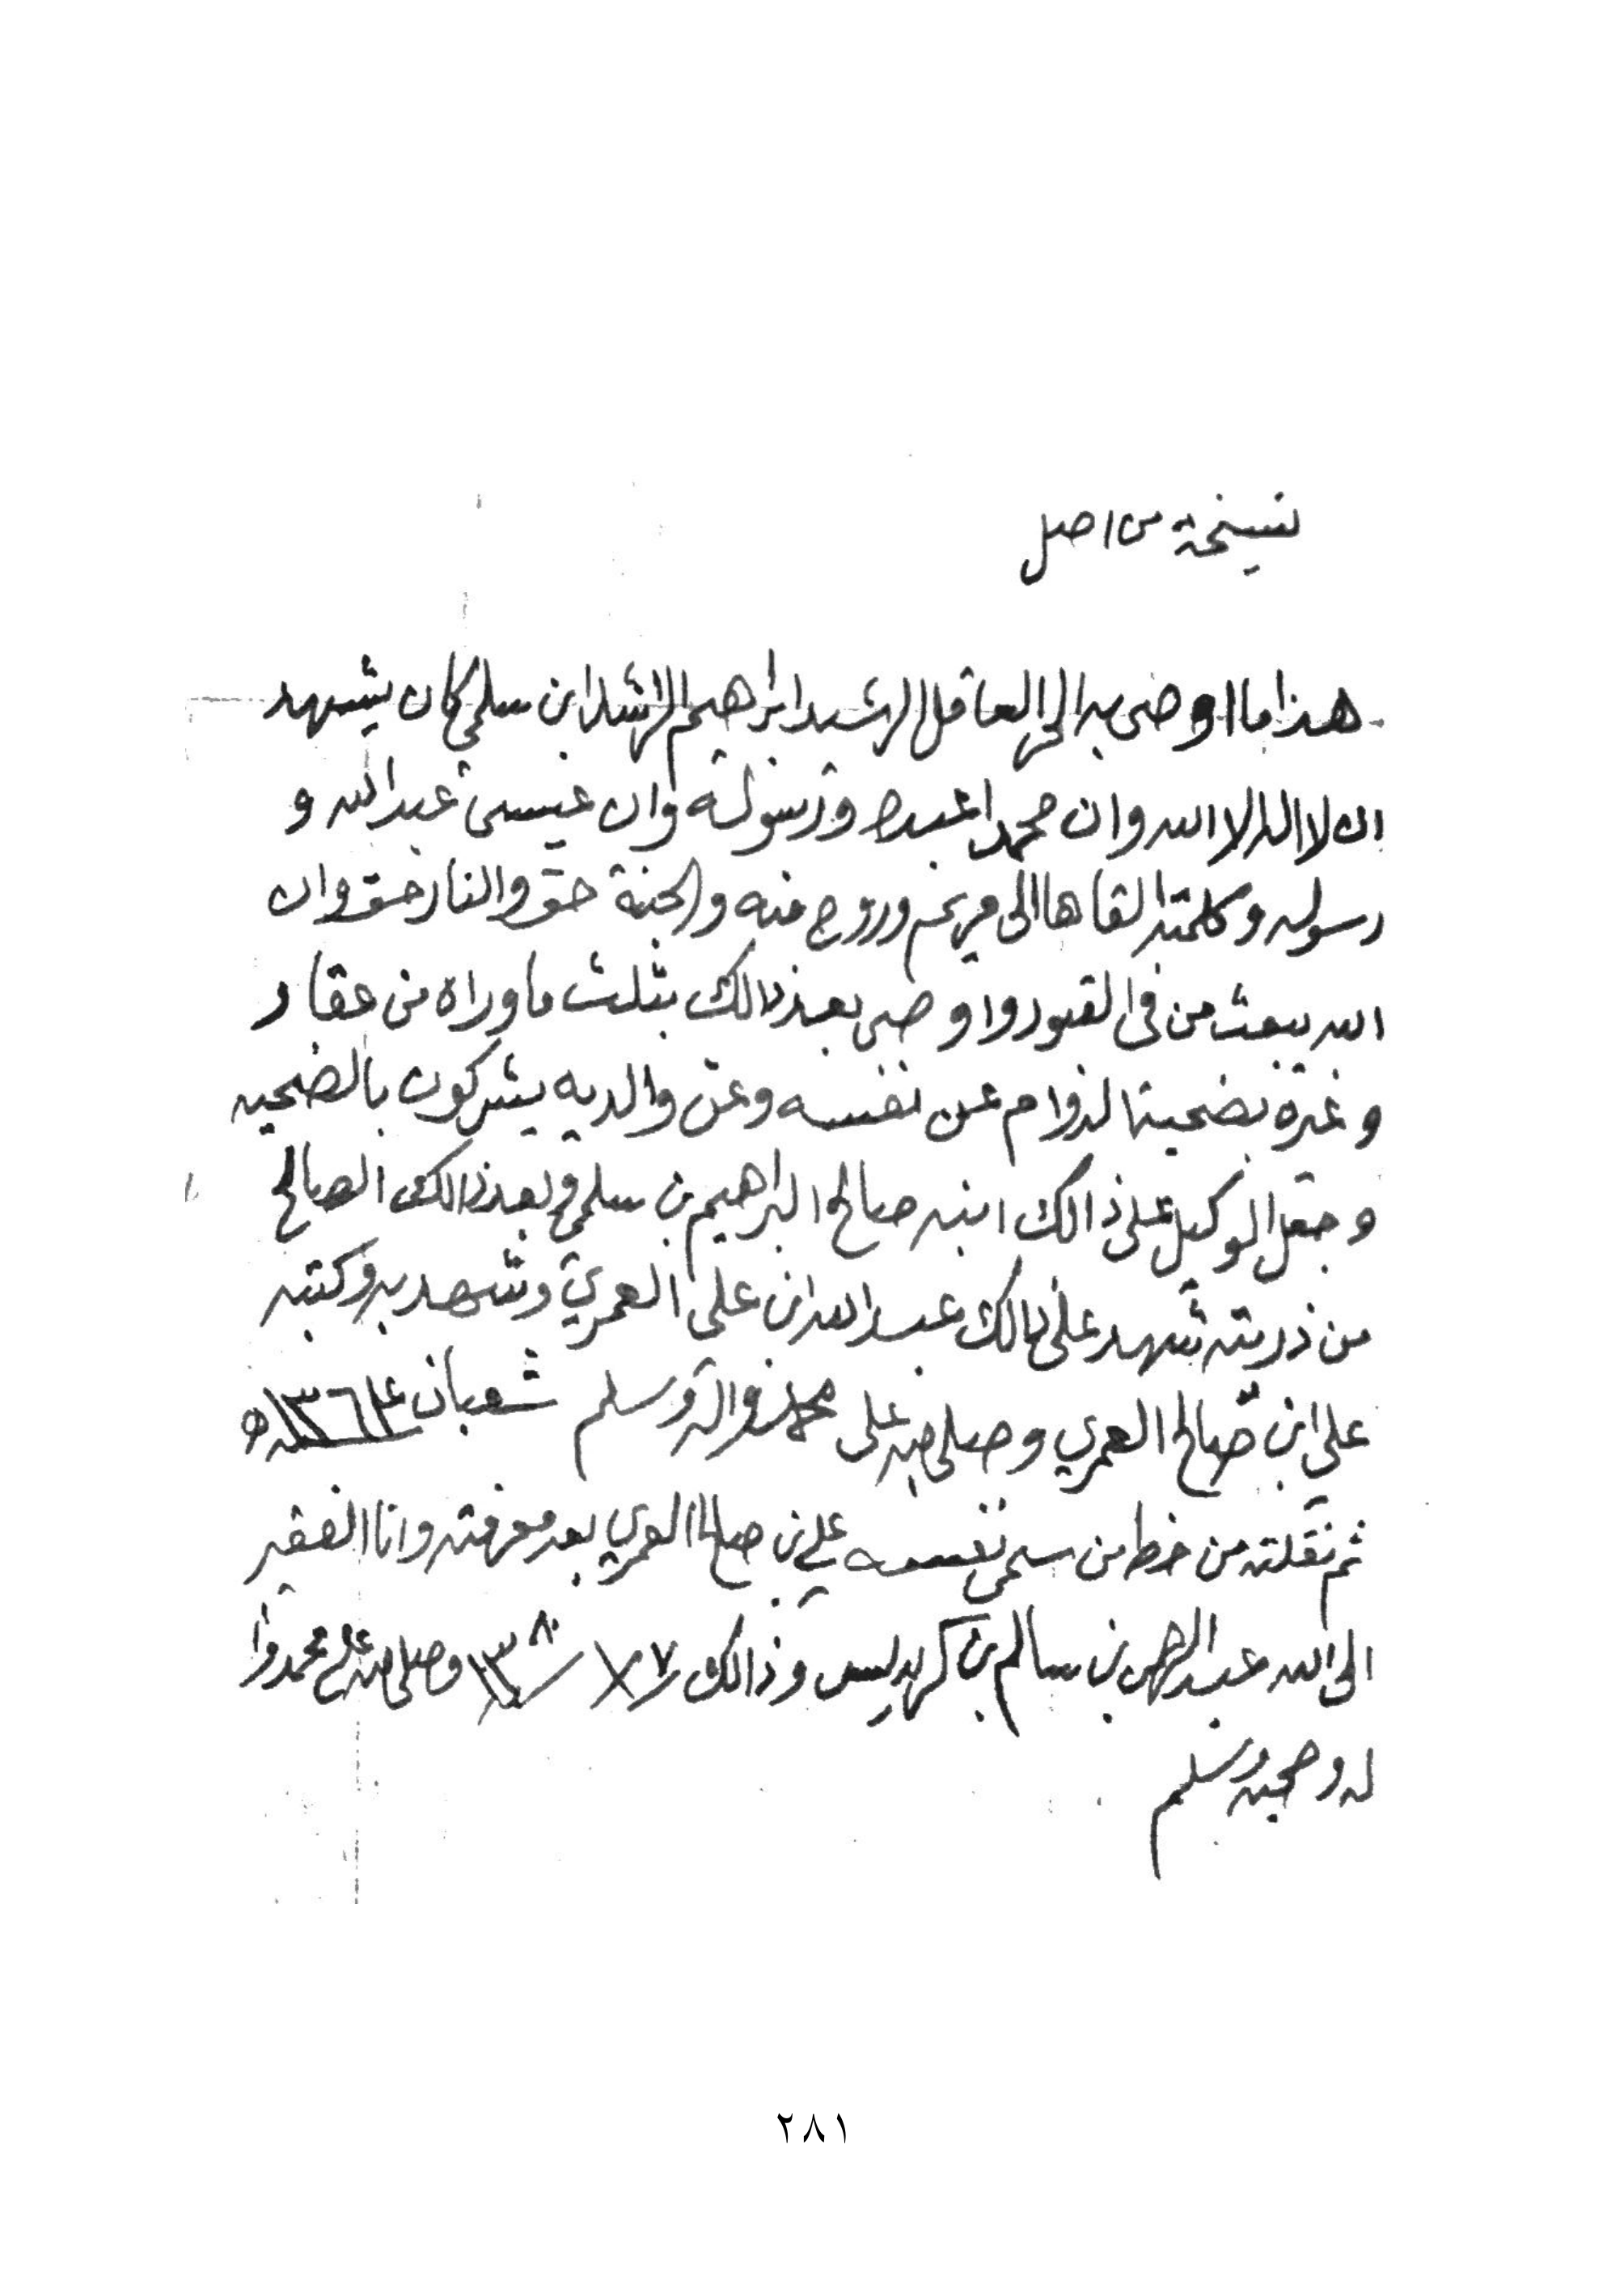 نسخة من اصل
هذا ما اوصى به الحر العاقل الرشيد ابراهيم الراشد ابن سلمي كان يشهد
ان لا اله الا الله وان محمدا عبده ورسوله وان عيسى عبد الله و
رسوله وكلمته القاها الى مريم وروح منه والجنة حق والنار حق وان
الله يبعث من في القبور واوصى بعد ذالك بثلث ما وراه من عقار
و غيره بضحيتا لدوام عن نفسه وعن والديه يشركون بالضحيه
وجعل الوكيل على ذالك ابنه صالح البراهيم بن سلمي وبعد ذالك الصالح
من ذريته شهد على ذالك عبد الله ابن علي العمري وشهد به وكتبه
علي ابن صالح العمري وصلى الله على محمد واله وسلم شعبان سنه ١٣٦٤ه
ثم نقلته من خط من سمى نفسه علي بن صالح العمري بعد معرفته وانا الفقير
الى الله عبد الرحمن بن سالم بن كريديس وذالك ٧ / ٧ / ١٣٨٠ وصلى الله على محمد وا
له وصحبه وسلم
٢٨١